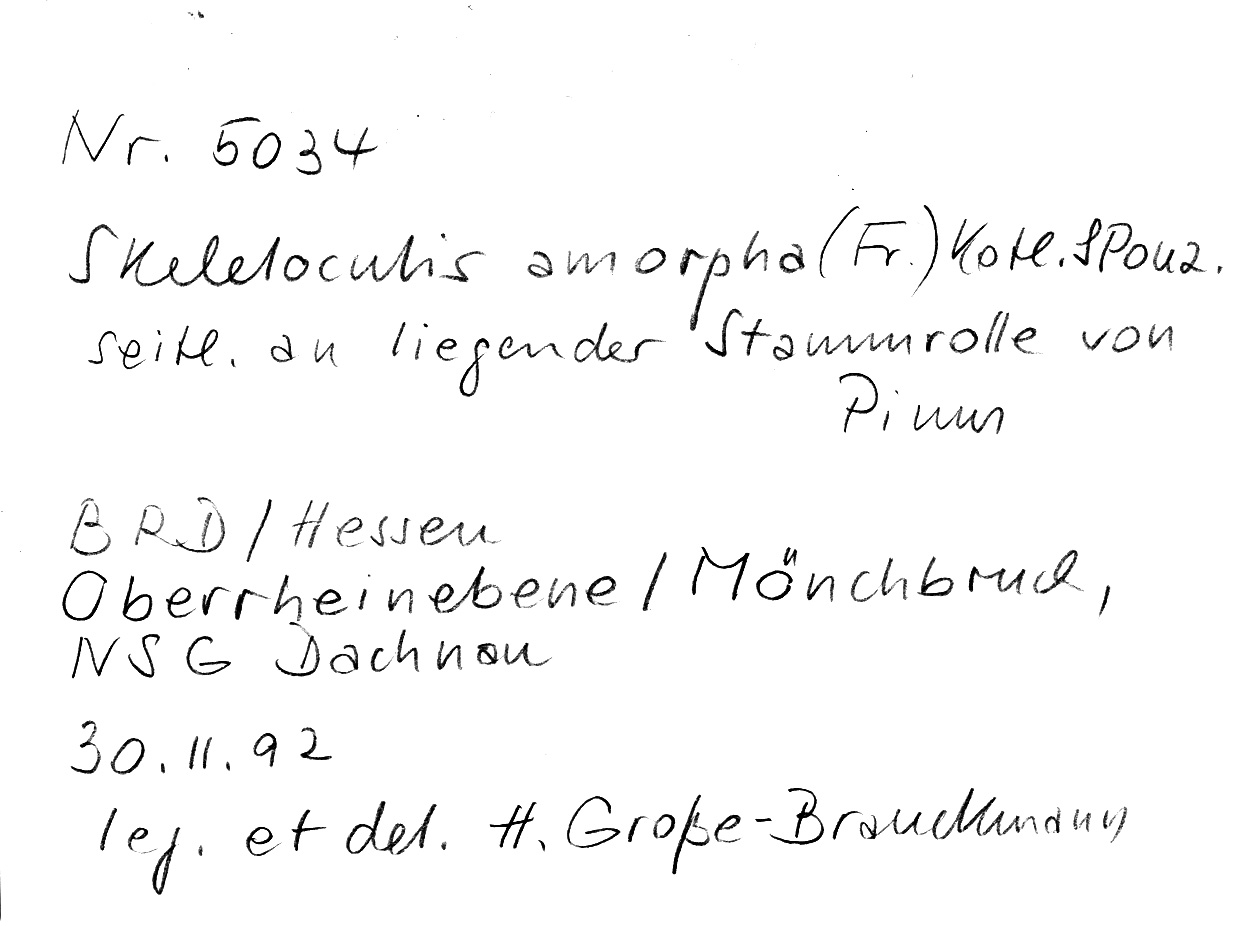 Nr. 5034
Skeletocutis amorpha (Fr.) Kotl. & Pouz.
seitl. an liegender Stammrolle von
Pinus
BRD / Hessen
Oberrheinebene / Mönchbruch,
NSG Dachnau
30.11.92
leg. et det. H. Große-Brauckmann